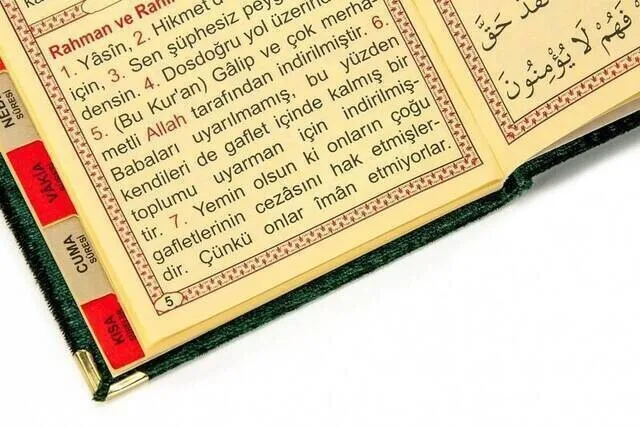 Rahman ve Rahî
1. Yâsîn, 2. Hikmet
için, 3. Sen şüphesiz peyg
densin. 4. Dosdoğru yol üzerind
5. (Bu Kur'an) Gâlip ve çok merha-
metli Allah tarafından indirilmiştir. 6.
Babaları uyarılmamış, bu yüzden
kendileri de gaflet içinde kalmış bir
toplumu uyarman için indirilmiş-
tir. 7. Yemin olsun ki onların çoğu
gafletlerinin cezâsını hak etmişler-
dir. Çünkü onlar îmân etmiyorlar.
5
حَقَّ
فَهُمْ لَا يُؤْمِنُونَ
SURESİ
VAKIA
CUMA
SURESİ
KISA